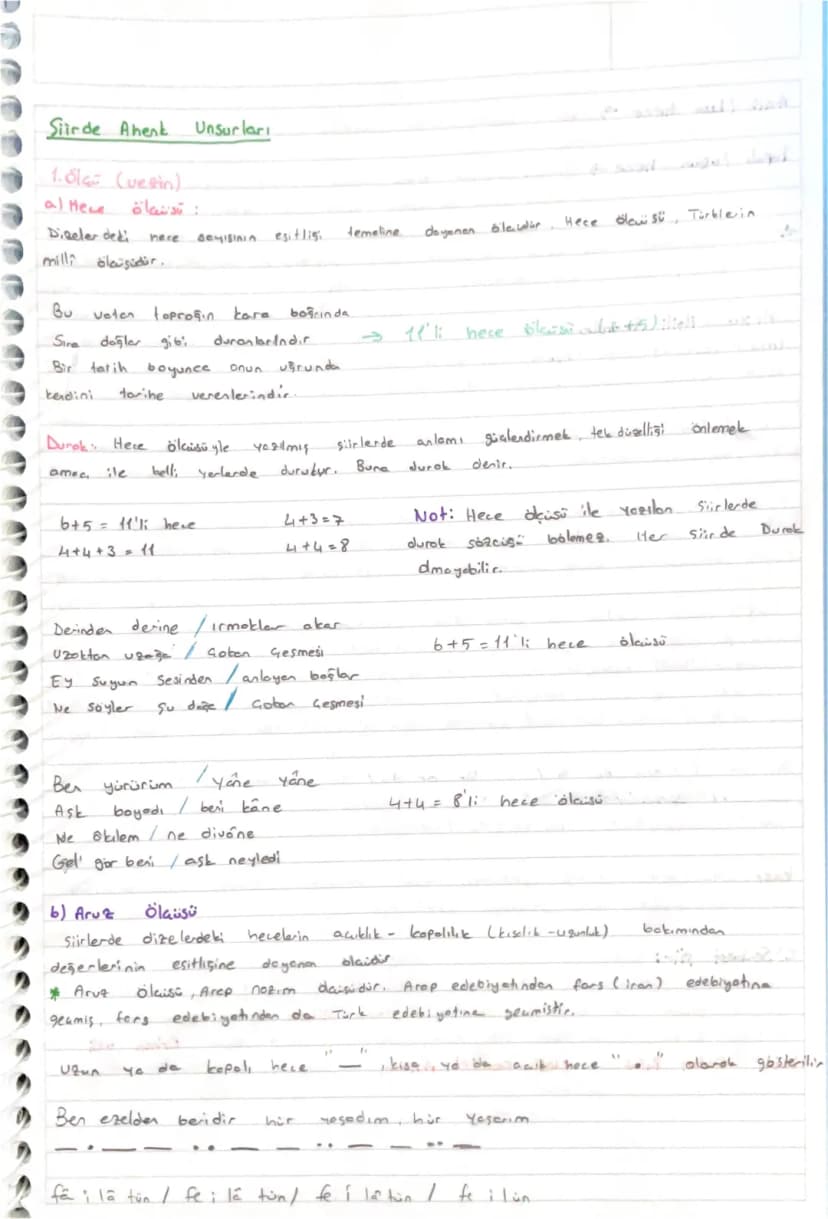 Şiirde Ahenk Unsurları
1. Ölçü (vezin)
a) Hece ölçüsü :
Dizelerdeki hece sayısının eşitliği temeline dayanan ölçüdür. Hece ölçüsü, Türklerin
millî ölçüsüdür.
Bu vatan toprağın kara bağrında
Sıra dağlar gibi duranlarındır → 11'li hece ölçüsü (6+5)
Bir tarih boyunca onun uğrunda
kendini tarihe verenlerindir.
Durak: Hece ölçüsüyle yazılmış şiirlerde anlamı güçlendirmek, tek düzelliği önlemek
amacı ile belli yerlerde durulur. Buna durak denir.
6+5 = 11'li hece 4+3=7
4+4+3 = 11 4+4=8
Not: Hece ölçüsü ile yazılan şiirlerde
durak sözcüğü bölemez. Her şiirde Durak
olmayabilir.
Derinden derine / ırmaklar akar
Uzaktan uzağa / Çoban Çeşmesi 6+5=11'li hece ölçüsü
Ey suyun sesinden / anlayan bağlar
Ne söyler şu dağa / Çoban Çeşmesi
Ben yürürüm / yâne yâne
Aşk boyadı / beni kâne 4+4 = 8'li hece ölçüsü
Ne âkılem / ne divâne
Gel gör beni / aşk neyledi
b) Aruz Ölçüsü
Şiirlerde dizelerdeki hecelerin açıklık - kapalılık (kısalık - uzunluk) bakımından
değerlerinin eşitliğine dayanan ölçüdür
* Aruz ölçüsü, Arap nazım ölçüsüdür. Arap edebiyatından fars (iran) edebiyatına
geçmiş, fars edebiyatından da Türk edebiyatına geçmiştir.
Uzun ya da kapalı hece "—", kısa ya da açık hece "." olarak gösterilir
Ben ezelden beridir hür yaşadım, hür yaşarım
— . — — . . — — . . — — . . —
fâ i lâ tün / fe i lâ tün / fe i lâ tün / fe i lün